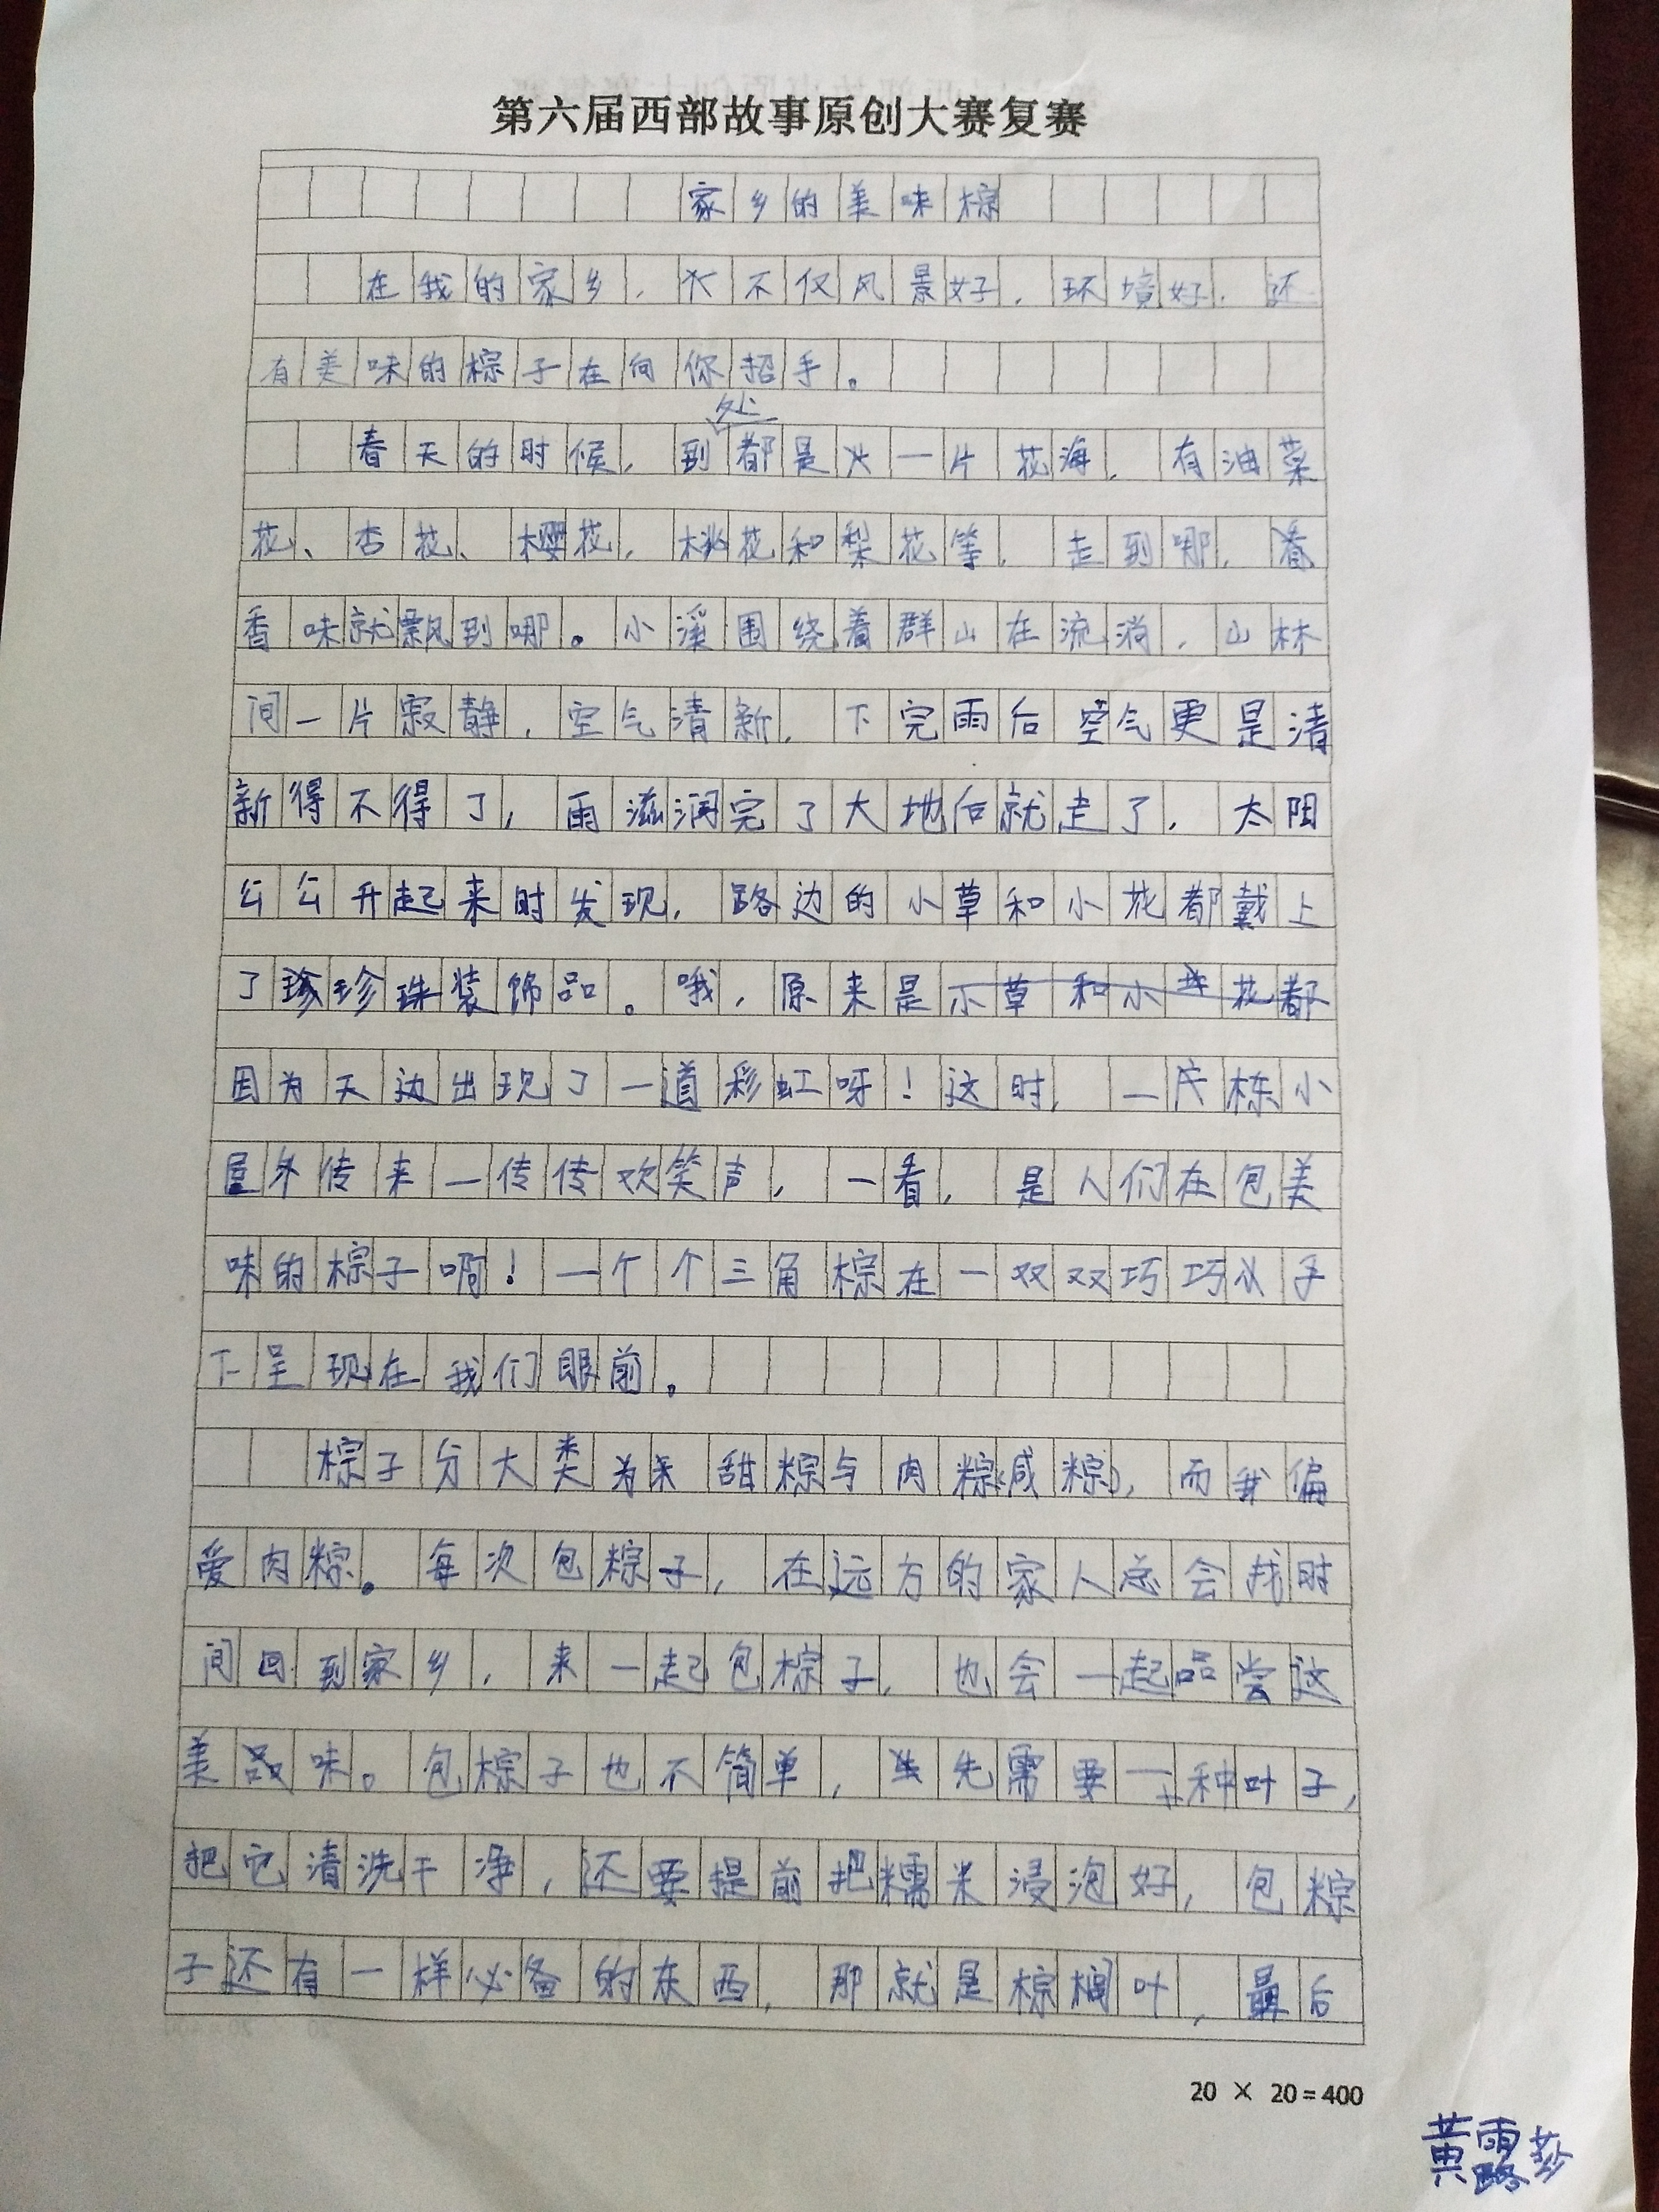 第六届西部故事原创大赛复赛
家乡的美味棕
在我的家乡，不仅风景好，环境好，还
有美味的棕子在向你招手。
春天的时候，到处都是一片花海，有油菜
花、杏花、樱花，桃花和梨花等，走到哪，
香味就飘到哪。小溪围绕着群山在流淌，山林
间一片寂静，空气清新，下完雨后空气更是清
新得不得了，雨滋润完了大地后就走了，太阳
公公升起来时发现，路边的小草和小花都戴上
了珍珠装饰品。哦，原来是小草和小花都
因为天边出现了一道彩虹呀！这时，一房栋小
屋外传来一传传欢笑声，一看，是人们在包美
味的棕子啊！一个个三角棕在一双双巧巧手
下呈现在我们眼前。
棕子分大类为甜粽与肉粽(咸粽)，而我偏
爱肉粽。每次包粽子，在远方的家人总会找时
间回到家乡，来一起包棕子，也会一起品尝这
美味。包棕子也不简单，先需要一种叶子，
把它清洗干净，还要提前把糯米浸泡好，包粽
子还有一样必备的东西，那就是棕榈叶，最后
20 × 20=400
黄露莎